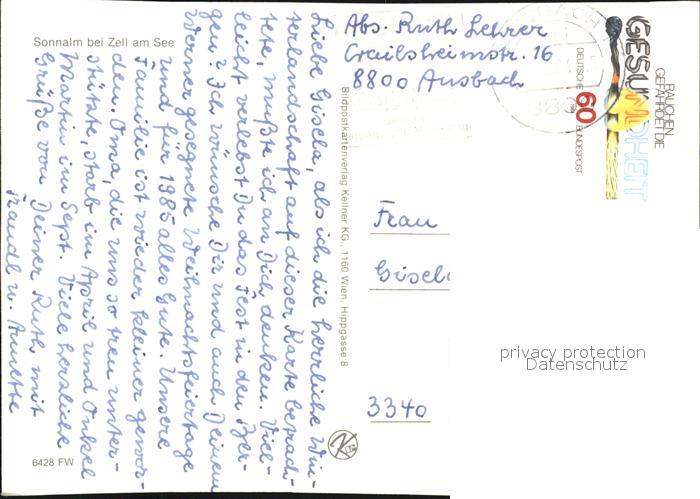 Sonnalm bei Zell am See
Liebe Gisela, als ich die herrliche Win-
terlandschaft auf dieser Karte betrach-
tete, mußte ich an Dich denken. Viel-
leicht verlebst Du das Fest in den Ber-
gen? Ich wünsche Dir und auch Deinem
Werner gesegnete Weihnachtsfeiertage
und für 1985 alles Gute. Unsere
Familie ist wieder kleiner gewor-
den. Oma, die uns so treu unter-
stützte, starb im April und Onkel
Martin im Sept. Viele herzliche
Grüße von Deiner Ruth mit
Traudl u. Annette
6428 FW
Bildpostkartenverlag Kellner KG., 1160 Wien, Hippgasse 8
Abs. Ruth Lehrer
Crailsheimstr. 16
8800 Ansbach
RAUCHEN
GEFÄHRDET DIE
GESUNDHEIT
DEUTSCHE BUNDESPOST
60
Frau
Gisela
3340
privacy protection
Datenschutz